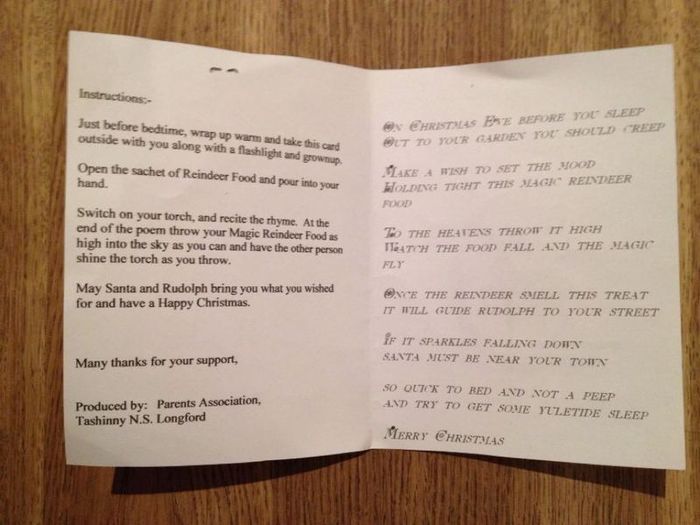 Instructions:-
Just before bedtime, wrap up warm and take this card
outside with you along with a flashlight and grownup.
Open the sachet of Reindeer Food and pour into your
hand.
Switch on your torch, and recite the rhyme. At the
end of the poem throw your Magic Reindeer Food as
high into the sky as you can and have the other person
shine the torch as you throw.
May Santa and Rudolph bring you what you wished
for and have a Happy Christmas.
Many thanks for your support,
Produced by: Parents Association,
Tashinny N.S. Longford
ON CHRISTMAS EVE BEFORE YOU SLEEP
OUT TO YOUR GARDEN YOU SHOULD CREEP
MAKE A WISH TO SET THE MOOD
HOLDING TIGHT THIS MAGIC REINDEER
FOOD
TO THE HEAVENS THROW IT HIGH
WATCH THE FOOD FALL AND THE MAGIC
FLY
ONCE THE REINDEER SMELL THIS TREAT
IT WILL GUIDE RUDOLPH TO YOUR STREET
IF IT SPARKLES FALLING DOWN
SANTA MUST BE NEAR YOUR TOWN
SO QUICK TO BED AND NOT A PEEP
AND TRY TO GET SOME YULETIDE SLEEP
MERRY CHRISTMAS